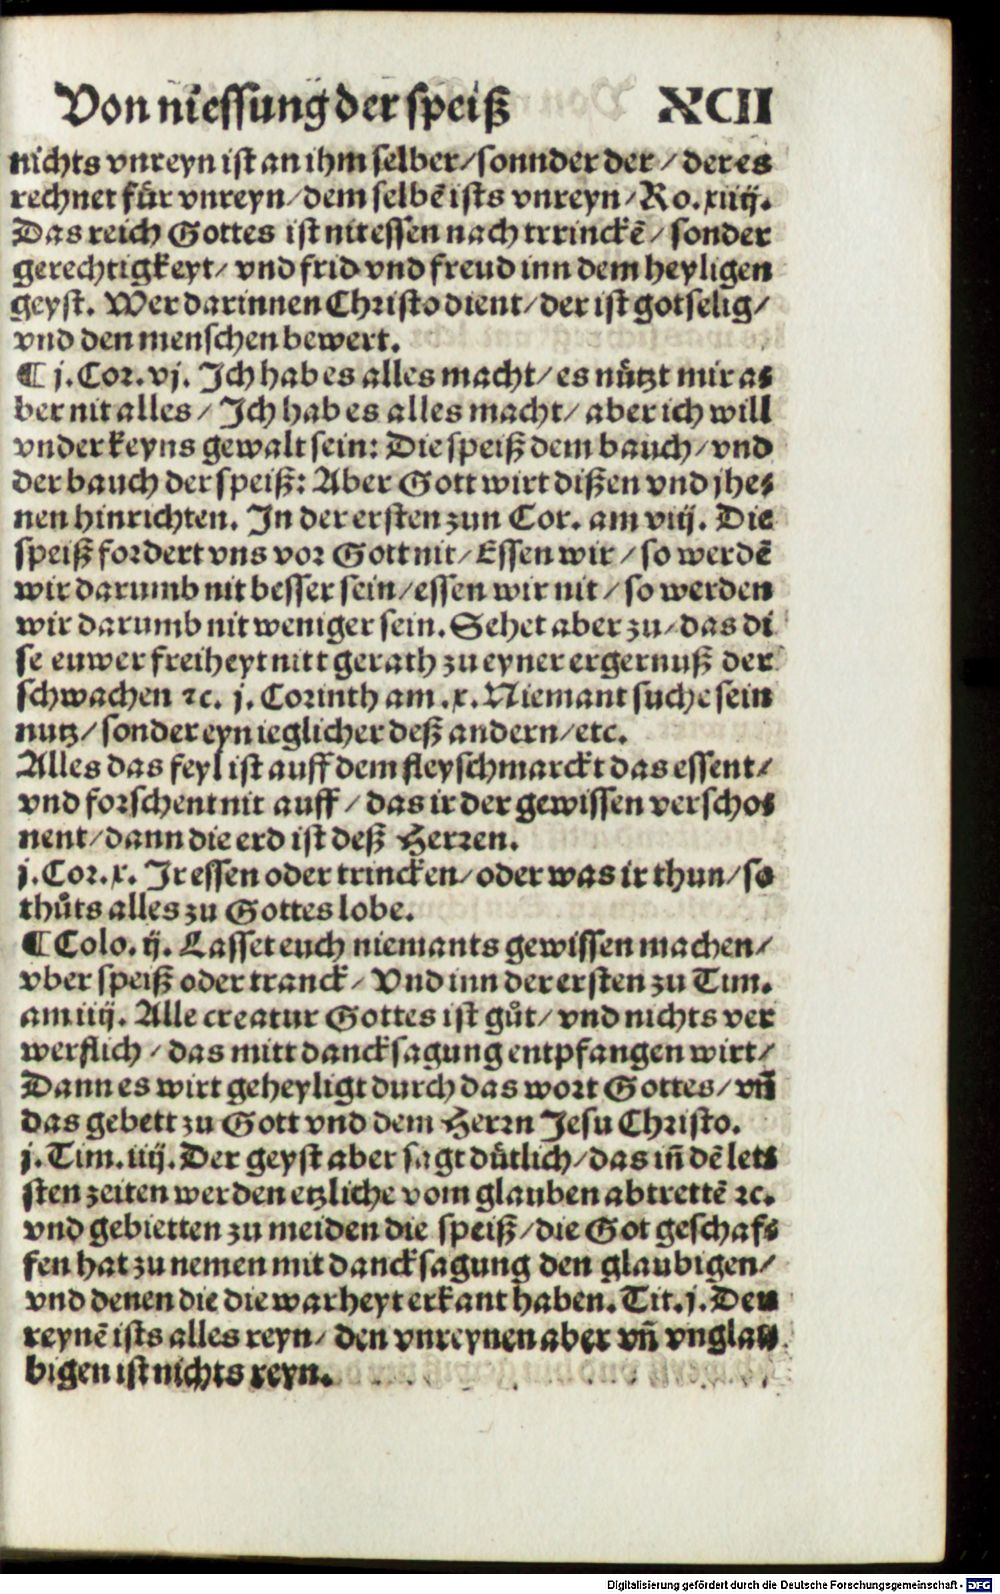 Von niessung der speiß XCII
nichts vnreyn ist an ihm selber/sonnder der / der es
rechnet für vnreyn/dem selbē ists vnreyn/Ro.xiiij.
Das reich Gottes ist nit essen nach trrinckē/ sonder
gerechtigkeyt/ vnd frid vnd freud inn dem heyligen
geyst. Wer darinnen Christo dient/der ist gotselig/
vnd den menschen bewert.
¶ j.Cor.vj. Ich hab es alles macht/es nützt mir a⸗
ber nit alles/ Ich hab es alles macht/ aber ich will
vnder keyns gewalt sein: Die speiß dem bauch/vnd
der bauch der speiß: Aber Gott wirt dißen vnd jhe⸗
nen hinrichten. In der ersten zun Cor. am viij. Die
speiß fordert vns vor Gott nit/Essen wir / so werdē
wir darumb nit besser sein/essen wir nit / so werden
wir darumb nit weniger sein. Sehet aber zu/das di
se euwer freiheyt nitt gerath zu eyner ergernuß der
schwachen ꝛc. j. Corinth am .x. Niemant suche sein
nutz/sonder eyn ieglicher deß andern/etc.
Alles das feyl ist auff dem fleyschmarckt das essent/
vnd forschent nit auff / das ir der gewissen verscho⸗
nent/dann die erd ist deß Herren.
j.Cor.x. Ir essen oder trincken/oder was ir thun/so
thůts alles zu Gottes lobe.
¶ Colo. ij. Lasset euch niemants gewissen machen/
vber speiß oder tranck/ Vnd inn der ersten zu Tim.
am iiij. Alle creatur Gottes ist gůt/vnd nichts ver
werflich / das mitt dancksagung entpfangen wirt/
Dann es wirt geheyligt durch das wort Gottes/vn̄
das gebett zu Gott vnd dem Herrn Jesu Christo.
j.Tim.iiij. Der geyst aber sagt dütlich/das in̄ dē lets
sten zeiten werden etzliche vom glauben abtrettē ꝛc.
vnd gebietten zu meiden die speiß/die Got geschaf⸗
fen hat zu nemen mit dancksagung den glaubigen/
vnd denen die die warheyt erkant haben. Tit.j. Den
reynē ists alles reyn/ den vnreynen aber vn̄ vnglau
bigen ist nichts reyn.
Digitalisierung gefördert durch die Deutsche Forschungsgemeinschaft - DFG